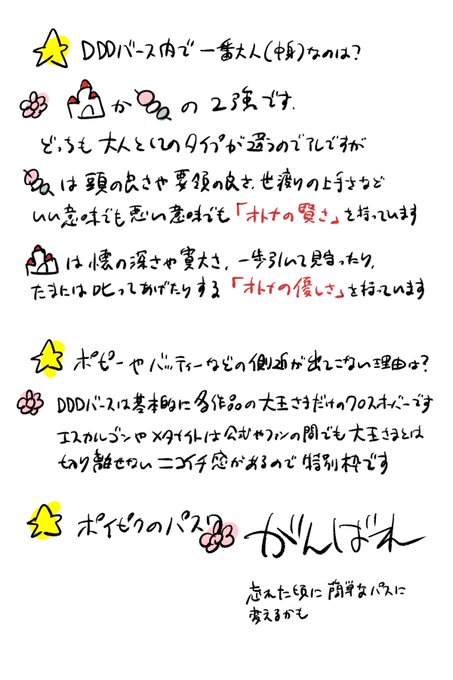 DDDバース内で一番大人(中身)なのは?
かの2強です.
どっちも大人としてのタイプが違うのでアレですが
は頭の良さや要領の良さ、世渡りの上手さなど
いい意味でも悪い意味でも「オトナの賢さ」を持っています
は懐の深さや寛大さ、一歩引いて見守ったり,
たまには叱ってあげたりする「オトナの優しさ」を持っています
ポピーやバッティーなどの側近が出てこない理由は?
DDDバースは基本的に各作品の大王さまだけのクロスオーバーです
エスカルゴンやメタナイトは公式やファンの間でも大王さまとは
切り離せないニコイチ感があるので特別枠です
ポイピクのパスワ
がんばれ
忘れた頃に簡単なパスに
変えるかも